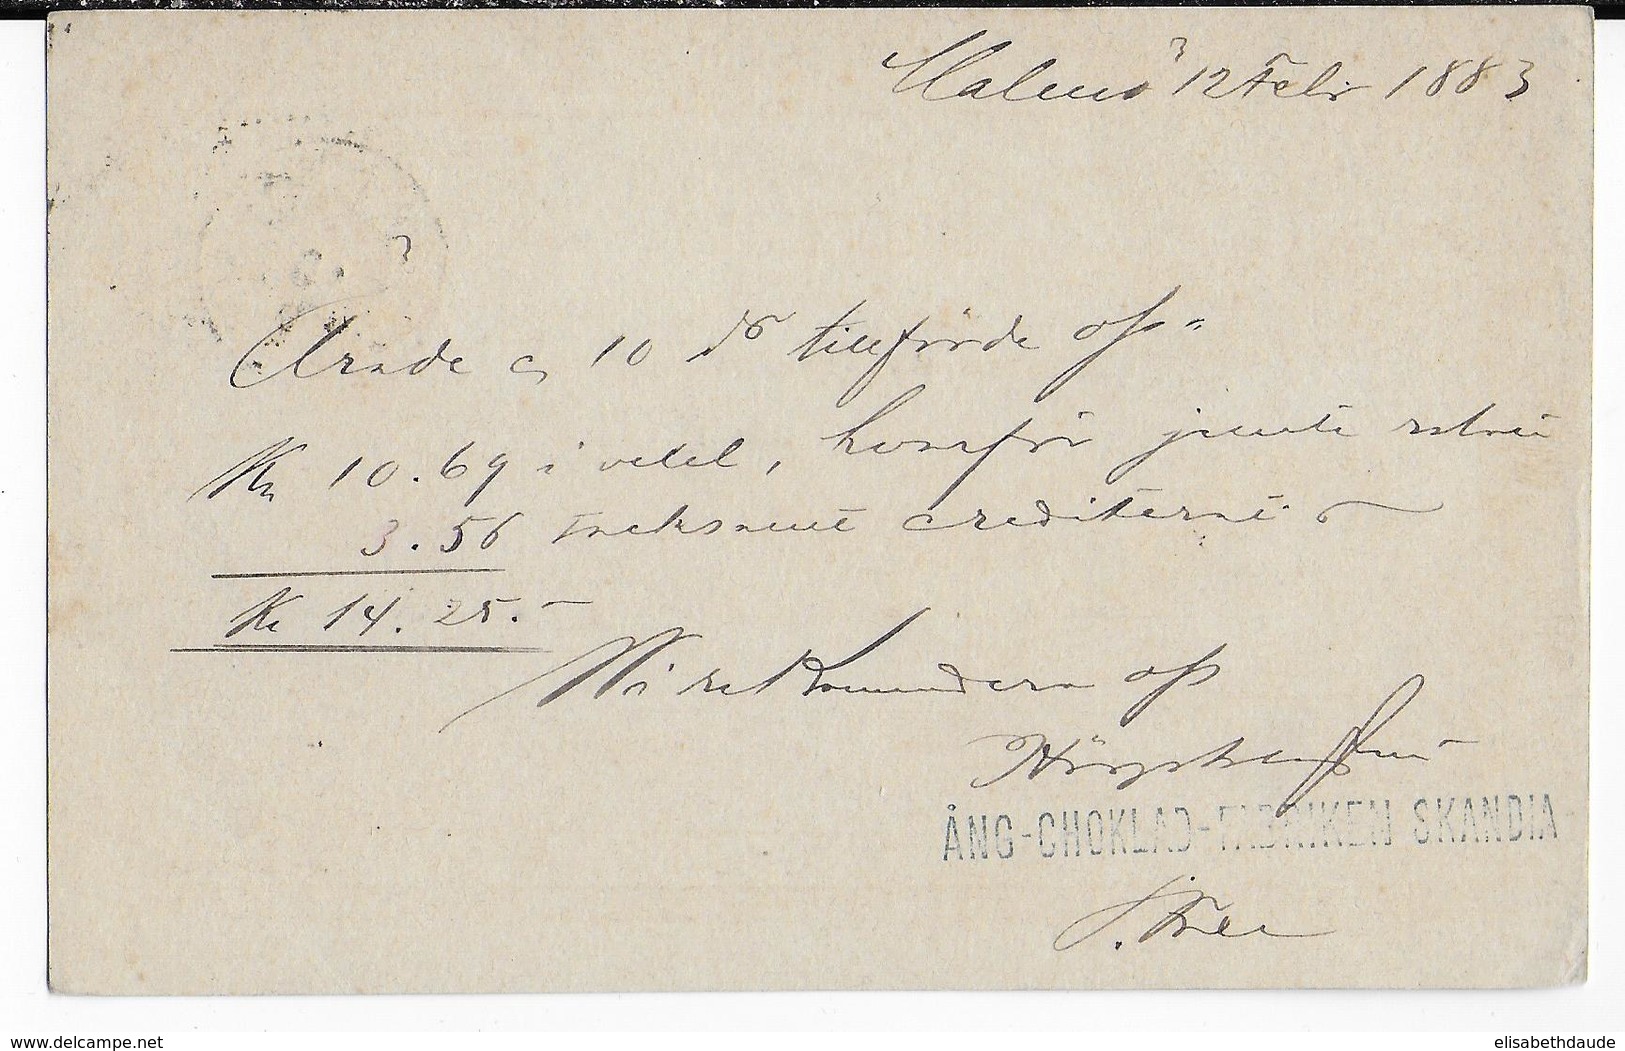 Malmö 12 Febr 1883
Ärade af 10 ds tillförde oss
Kr 10.69 i vexel, hvarför jemte
3.56 crediterat.
Kr 14.25.-
Vi rekommendera oss
Högaktningsfullt
ÅNG-CHOKLAD-FABRIKEN SKANDIA
www.delcampe.net
elisabethdaude